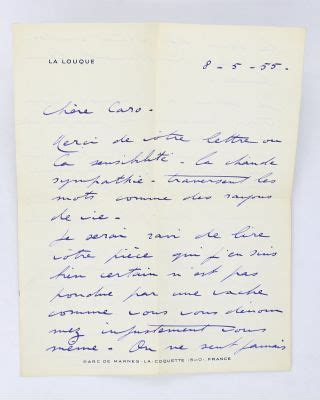 LA LOUQUE
8-5-55-
Chère Caro-
Merci de votre lettre ou
la sensibilité - la chaude
sympathie - traversent les
mots comme des rayons
de vie-
Je serai ravi de lire
votre pièce qui j'en suis
bien certain n'est pas
pondue par une vache
comme vous vous dénom
mez injustement vous
même - On ne sent jamais
PARC DE MARNES-LA-COQUETTE (S&O) FRANCE